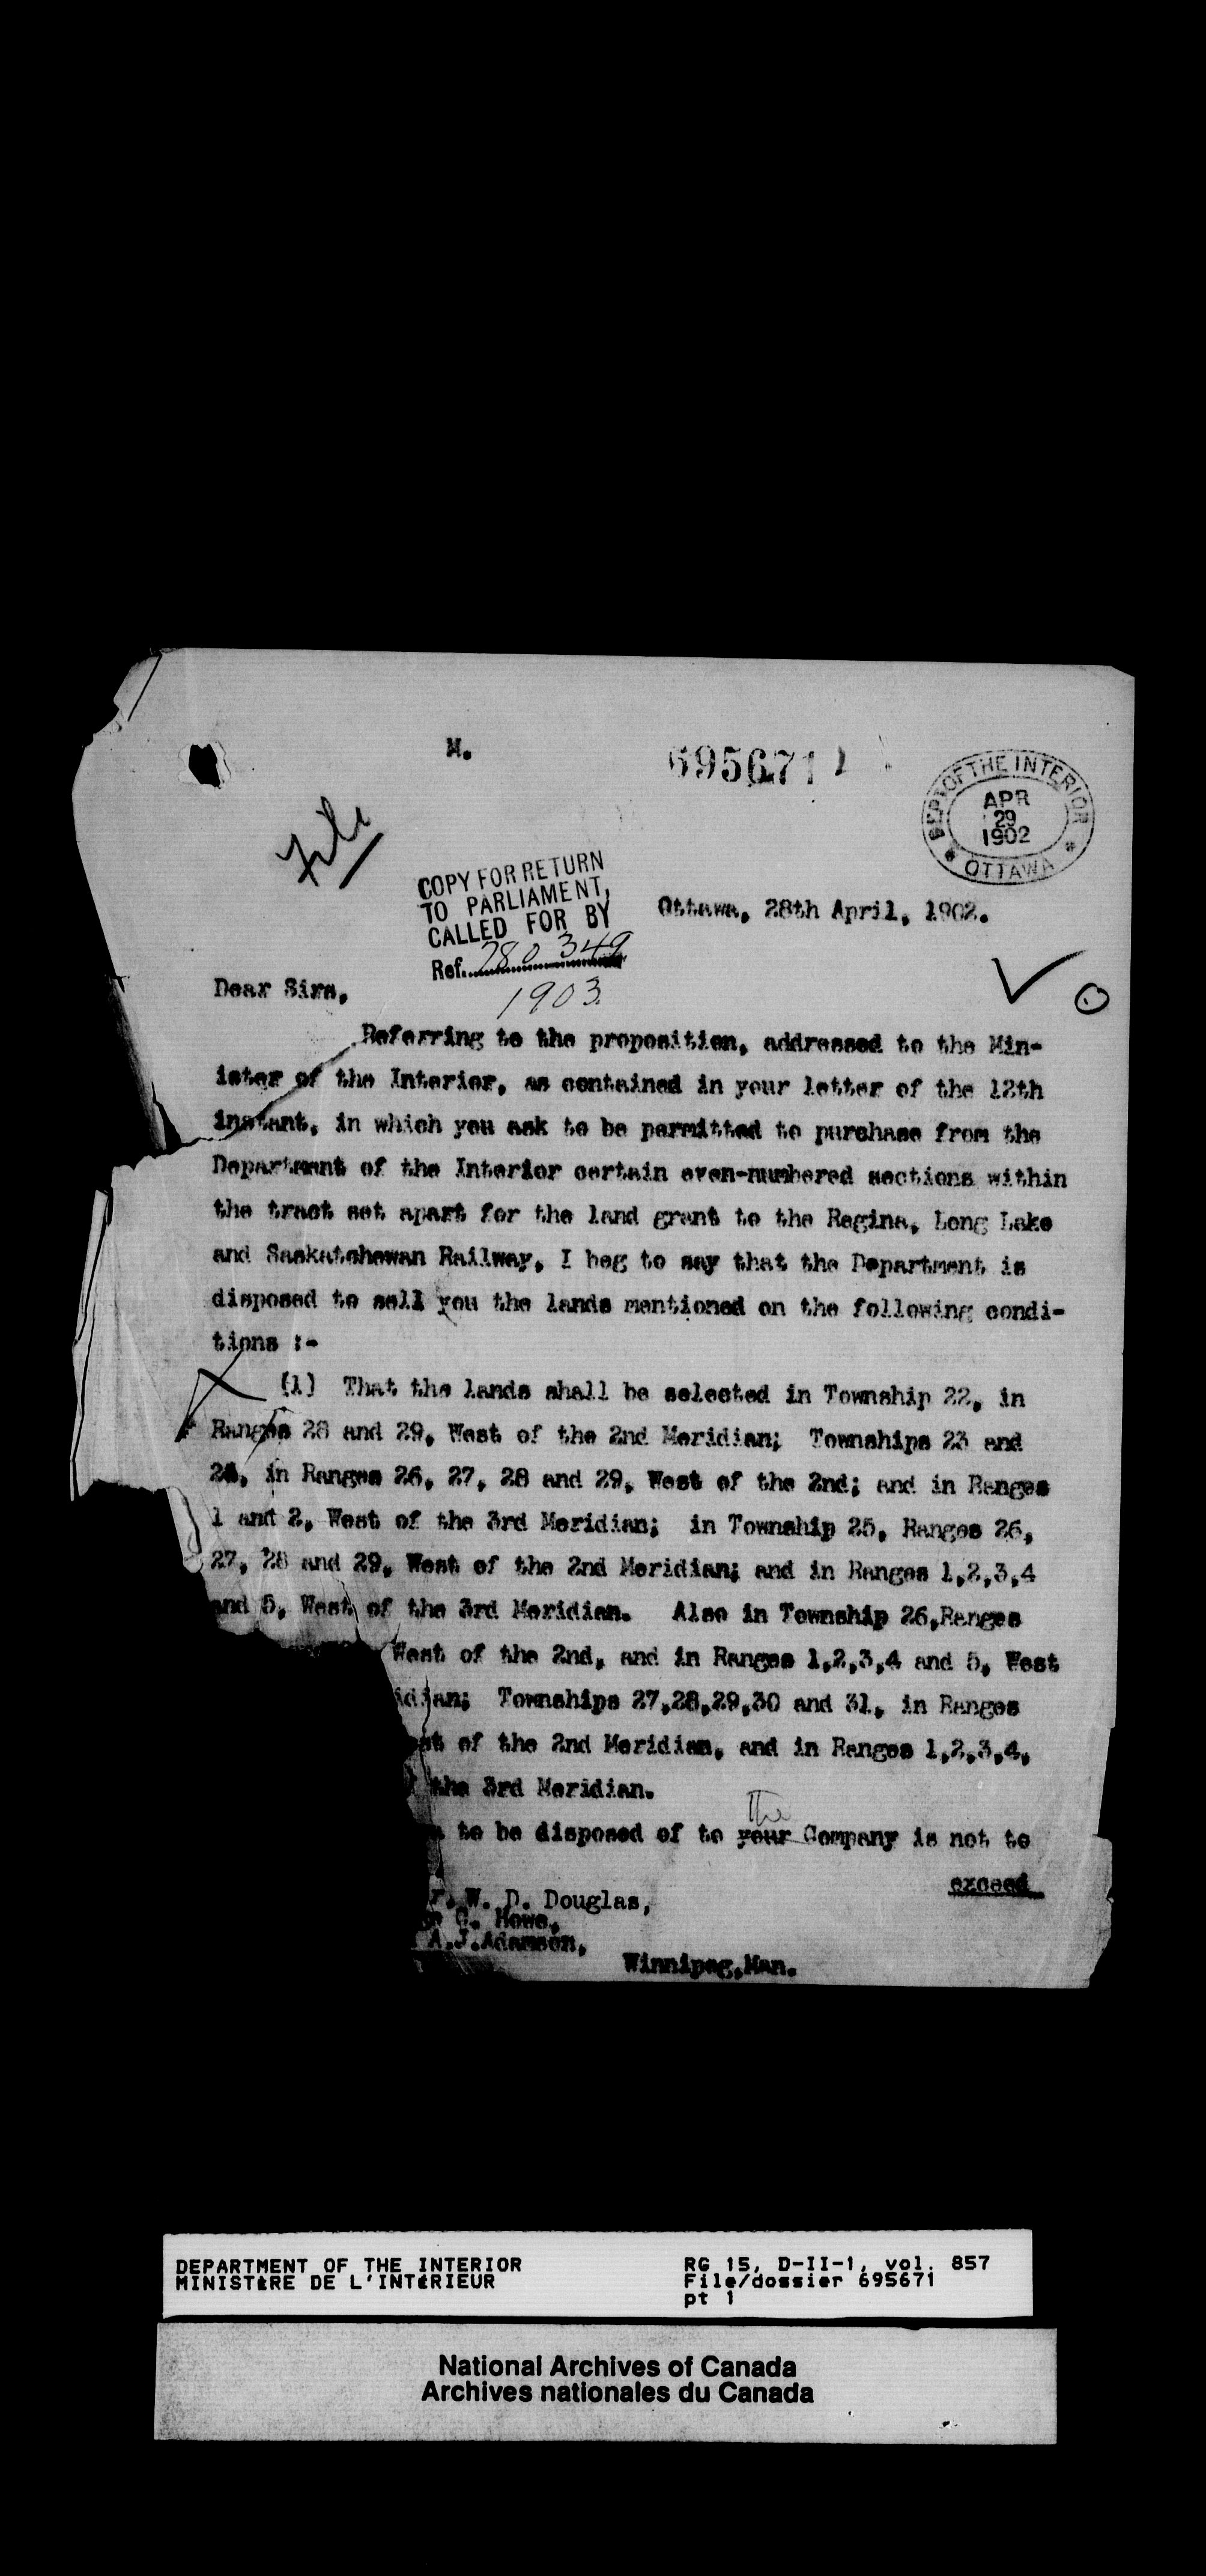 M.
695671 1
DEPT OF THE INTERIOR
APR
29
1902
OTTAWA
File
COPY FOR RETURN
TO PARLIAMENT,
CALLED FOR BY
Ref. 280349
1903.
Ottawa, 28th April, 1902.
Dear Sirs,
Referring to the proposition, addressed to the Min-
ister of the Interior, as contained in your letter of the 12th
instant, in which you ask to be permitted to purchase from the
Department of the Interior certain even-numbered sections within
the tract set apart for the land grant to the Regina, Long Lake
and Saskatchewan Railway, I beg to say that the Department is
disposed to sell you the lands mentioned on the following condi-
tions :-
(1) That the lands shall be selected in Township 22, in
Ranges 28 and 29, West of the 2nd Meridian; Townships 23 and
24, in Ranges 26, 27, 28 and 29, West of the 2nd; and in Ranges
1 and 2, West of the 3rd Meridian; in Township 25, Ranges 26,
27, 28 and 29, West of the 2nd Meridian; and in Ranges 1,2,3,4
and 5, West of the 3rd Meridian. Also in Township 26,Ranges
West of the 2nd, and in Ranges 1,2,3,4 and 5, West
idian; Townships 27,28,29,30 and 31, in Ranges
st of the 2nd Meridian, and in Ranges 1,2,3,4,
the 3rd Meridian.
The
to be disposed of to your Company is not to
exceed
r. W. D. Douglas,
G. Howe,
A.J.Adamson,
Winnipeg,Man.
DEPARTMENT OF THE INTERIOR
MINISTÈRE DE L'INTÉRIEUR
RG 15, D-II-1, vol. 857
File/dossier 695671
pt 1
National Archives of Canada
Archives nationales du Canada